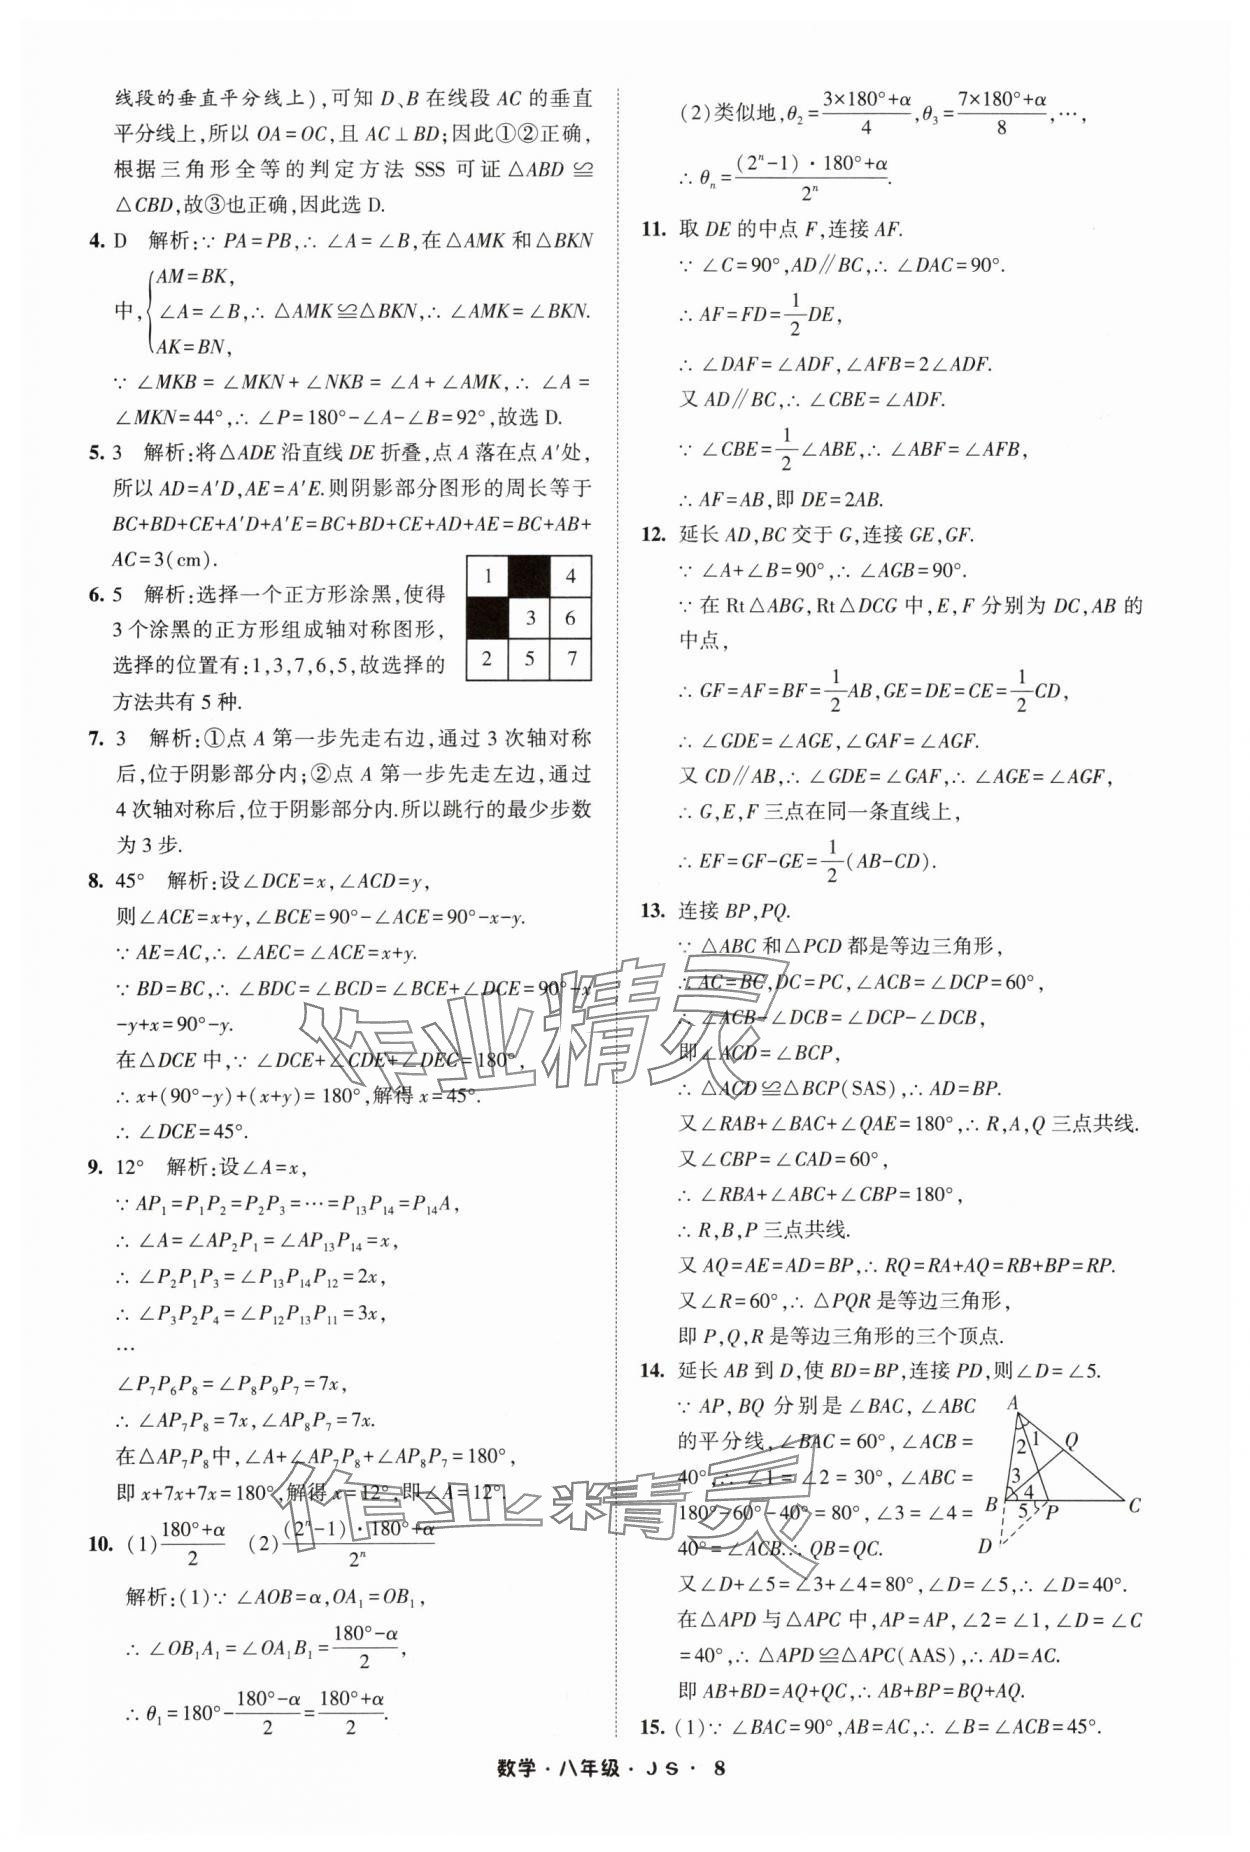 线段的垂直平分线上),可知 D、B 在线段 AC 的垂直
平分线上,所以 OA=OC,且 AC⊥BD;因此①②正确,
根据三角形全等的判定方法 SSS 可证△ABD≌
△CBD,故③也正确,因此选 D.
4. D 解析:∵ PA=PB,∴ ∠A=∠B,在△AMK 和△BKN
AM=BK,
中,{∠A=∠B,∴ △AMK≌△BKN,∴ ∠AMK=∠BKN.
AK=BN,
∵ ∠MKB=∠MKN+∠NKB=∠A+∠AMK,∴ ∠A=
∠MKN=44°,∴ ∠P=180°-∠A-∠B=92°,故选 D.
5. 3 解析:将△ADE 沿直线 DE 折叠,点 A 落在点 A′处,
所以 AD=A′D,AE=A′E.则阴影部分图形的周长等于
BC+BD+CE+A′D+A′E=BC+BD+CE+AD+AE=BC+AB+
AC=3(cm).
6. 5 解析:选择一个正方形涂黑,使得
3 个涂黑的正方形组成轴对称图形,
选择的位置有:1,3,7,6,5,故选择的
方法共有 5 种.
1 4
3 6
2 5 7
7. 3 解析:①点 A 第一步先走右边,通过 3 次轴对称
后,位于阴影部分内;②点 A 第一步先走左边,通过
4 次轴对称后,位于阴影部分内.所以跳行的最少步数
为 3 步.
8. 45° 解析:设∠DCE=x,∠ACD=y,
则∠ACE=x+y,∠BCE=90°-∠ACE=90°-x-y.
∵ AE=AC,∴ ∠AEC=∠ACE=x+y.
∵ BD=BC,∴ ∠BDC=∠BCD=∠BCE+∠DCE=90°-x
-y+x=90°-y.
在△DCE 中,∵ ∠DCE+∠CDE+∠DEC=180°,
∴ x+(90°-y)+(x+y)=180°,解得 x=45°.
∴ ∠DCE=45°.
9. 12° 解析:设∠A=x,
∵ AP₁=P₁P₂=P₂P₃=…=P₁₃P₁₄=P₁₄A,
∴ ∠A=∠AP₂P₁=∠AP₁₃P₁₄=x,
∴ ∠P₂P₁P₃=∠P₁₃P₁₄P₁₂=2x,
∴ ∠P₃P₂P₄=∠P₁₂P₁₃P₁₁=3x,
…
∠P₇P₆P₈=∠P₈P₉P₇=7x,
∴ ∠AP₇P₈=7x,∠AP₈P₇=7x.
在△AP₇P₈中,∠A+∠AP₇P₈+∠AP₈P₇=180°,
即 x+7x+7x=180°,解得 x=12°,即∠A=12°.
10. (1)(180°+α)/2 (2)((2ⁿ-1)·180°+α)/2ⁿ
解析:(1)∵ ∠AOB=α,OA₁=OB₁,
∴ ∠OB₁A₁=∠OA₁B₁=(180°-α)/2,
∴ θ₁=180°-(180°-α)/2=(180°+α)/2.
(2)类似地,θ₂=(3×180°+α)/4,θ₃=(7×180°+α)/8,…,
∴ θₙ=((2ⁿ-1)·180°+α)/2ⁿ.
11. 取 DE 的中点 F,连接 AF.
∵ ∠C=90°,AD∥BC,∴ ∠DAC=90°.
∴ AF=FD=1/2DE,
∴ ∠DAF=∠ADF,∠AFB=2∠ADF.
又 AD∥BC,∴ ∠CBE=∠ADF.
∵ ∠CBE=1/2∠ABE,∴ ∠ABF=∠AFB,
∴ AF=AB,即 DE=2AB.
12. 延长 AD,BC 交于 G,连接 GE,GF.
∵ ∠A+∠B=90°,∴ ∠AGB=90°.
∵ 在 Rt△ABG,Rt△DCG 中,E,F 分别为 DC,AB 的
中点,
∴ GF=AF=BF=1/2AB,GE=DE=CE=1/2CD,
∴ ∠GDE=∠AGE,∠GAF=∠AGF.
又 CD∥AB,∴ ∠GDE=∠GAF,∴ ∠AGE=∠AGF,
∴ G,E,F 三点在同一条直线上,
∴ EF=GF-GE=1/2(AB-CD).
13. 连接 BP,PQ.
∵ △ABC 和△PCD 都是等边三角形,
∴ AC=BC,DC=PC,∠ACB=∠DCP=60°,
∴ ∠ACB-∠DCB=∠DCP-∠DCB,
即∠ACD=∠BCP,
∴ △ACD≌△BCP(SAS),∴ AD=BP.
又∠RAB+∠BAC+∠QAE=180°,∴ R,A,Q 三点共线.
又∠CBP=∠CAD=60°,
∴ ∠RBA+∠ABC+∠CBP=180°,
∴ R,B,P 三点共线.
又 AQ=AE=AD=BP,∴ RQ=RA+AQ=RB+BP=RP.
又∠R=60°,∴ △PQR 是等边三角形,
即 P,Q,R 是等边三角形的三个顶点.
14. 延长 AB 到 D,使 BD=BP,连接 PD,则∠D=∠5.
∵ AP,BQ 分别是∠BAC,∠ABC
的平分线,∠BAC=60°,∠ACB=
40°,∴ ∠1=∠2=30°,∠ABC=
180°-60°-40°=80°,∠3=∠4=
40°=∠ACB.∴ QB=QC.
A
2 1 Q
3
4
B 5 P C
D
又∠D+∠5=∠3+∠4=80°,∠D=∠5,∴ ∠D=40°.
在△APD 与△APC 中,AP=AP,∠2=∠1,∠D=∠C
=40°,∴ △APD≌△APC(AAS),∴ AD=AC.
即 AB+BD=AQ+QC,∴ AB+BP=BQ+AQ.
15. (1)∵ ∠BAC=90°,AB=AC,∴ ∠B=∠ACB=45°.
数学·八年级·JS· 8
作业精灵
作业精灵